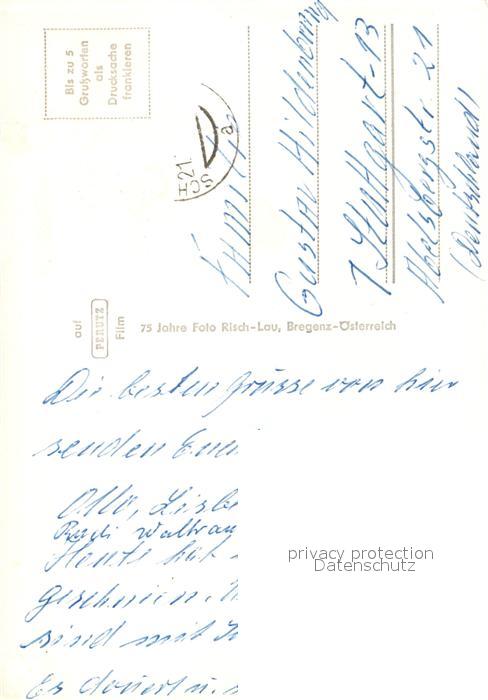 Bis zu 5
Grußworten
als
Drucksache
frankieren
SCH
21
a
Familie
Gustav Hildenbring
7 Stuttgart-13
21
(Deutschland)
auf
PERUTZ
Film
75 Jahre Foto Risch-Lau, Bregenz-Österreich
Die besten Grüsse von hier
senden Euch
Otto,
Rudi Waltrau
Heute hat
geschnien.
sind mit
Es dauert u.
privacy protection
Datenschutz